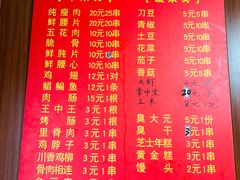 纯瘦肉 20元20串
鲜腰片 20元25串
五花肉 10元10串
脆骨 10元10串
鲜肫片 10元 串
鲜腰心 10元8串
鸡翅 3元1对
鲳鳊鱼 5元1条
肉肠 15元1根
王中王 3元1根
烤肠 3元1根
里脊肉 3元1串
鸡脖子 4元1串
川香鸡柳 3元1串
骨肉相连 3元1串
刀豆 5元5串
青椒 5元5串
土豆 5元5串
花菜 5元5串
茄子 5元5串
香菇 5元5串
大虾
掌中宝 20元
玉米
臭大元 5元1份
臭干 3元1串
芝士年糕 3元1串
黄金糕 3元1串
馒头 2元1串